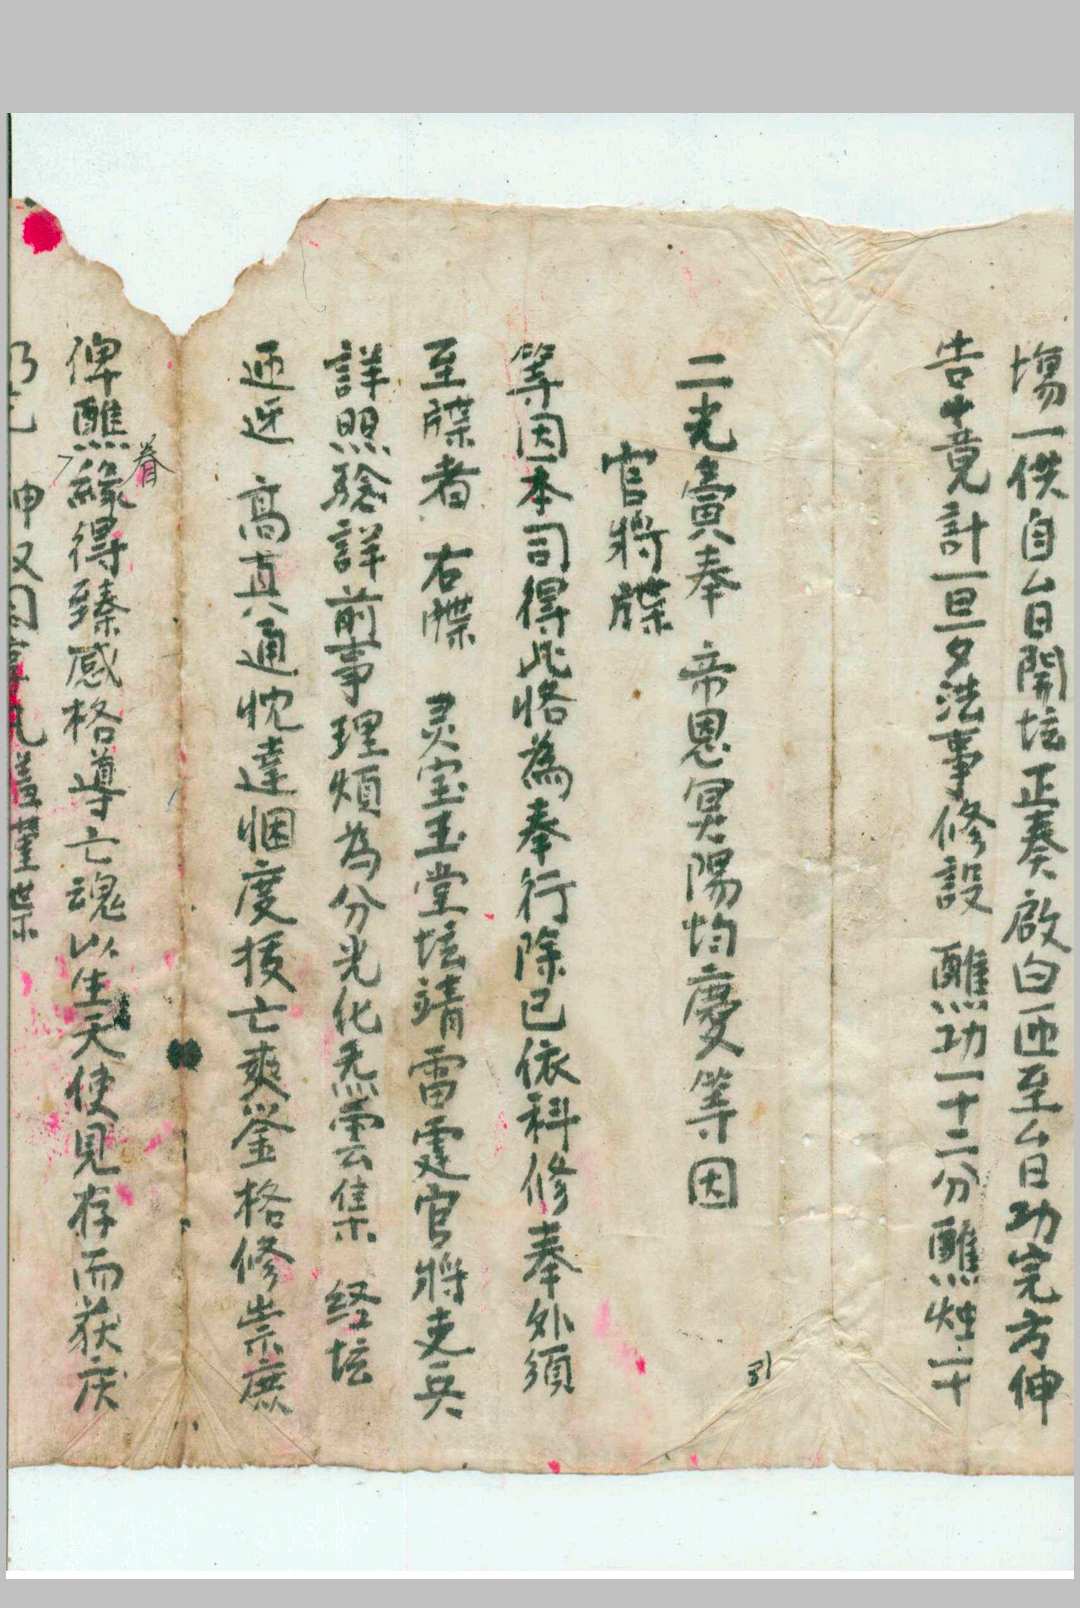 塲一供自厶日開坛正奏啟白匝至厶日功完方伸
告十竟計一旦夕法事修設 醮功一十二分醮烛一十
二光賫奉 帝恩冥陽均慶等因
官將牒
等因本司得此恪為奉行除已依科修奉外須
至牒者 右牒 灵宝玉堂坛靖雷霆官將吏兵
詳照驗詳前事理煩為分光化炁雲集 经坛
迎迓 高真通忱達悃度援亡爽签格修崇庶
俾醮緣得臻感格導亡魂以生天使見存而获庆
眷
引